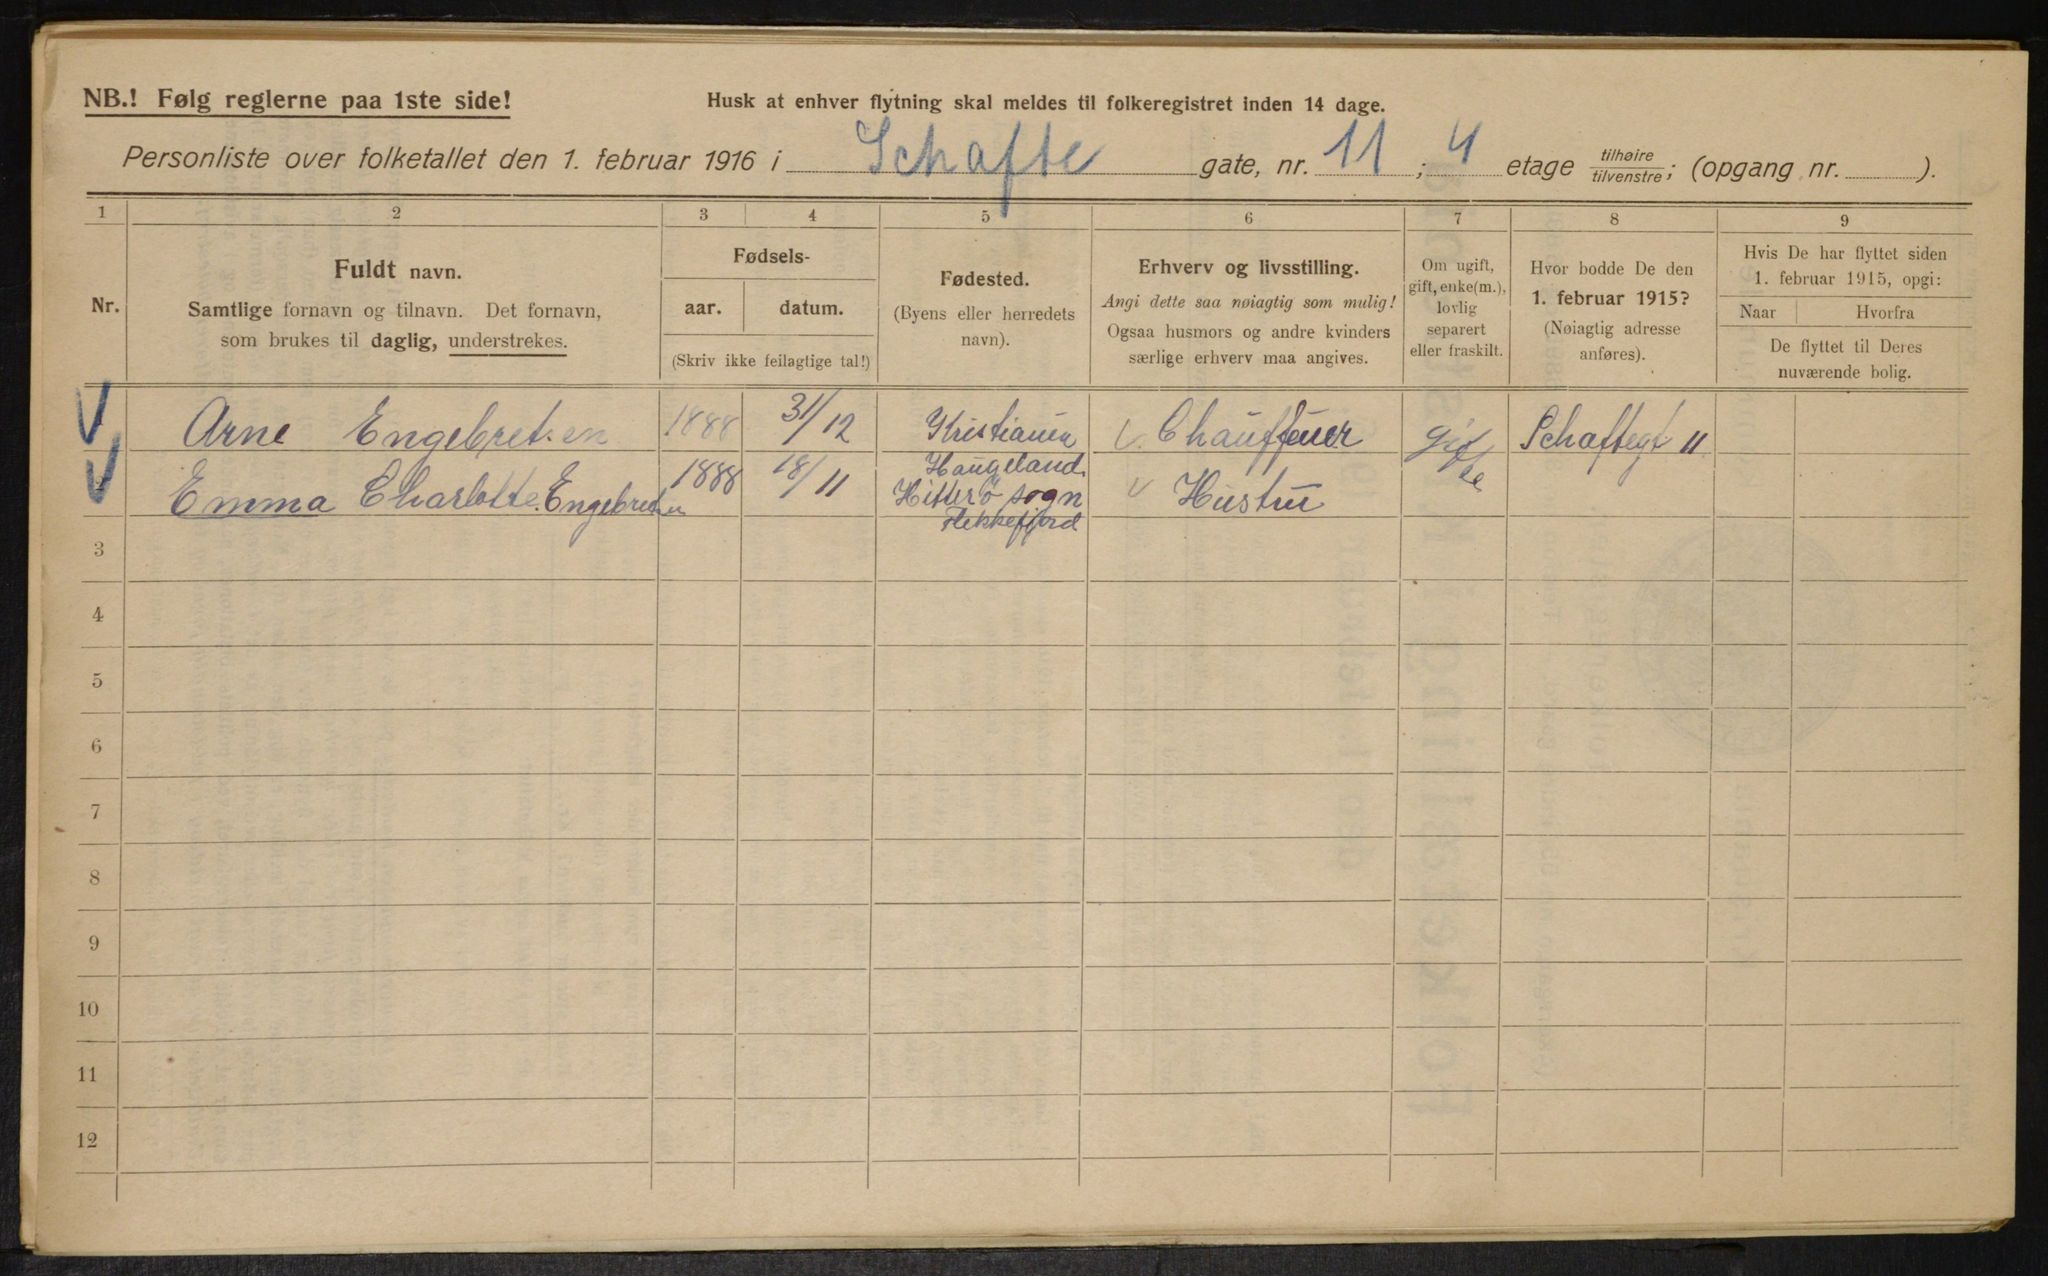 NB.! Følg reglerne paa 1ste side!
Husk at enhver flytning skal meldes til folkeregistret inden 14 dage.
Personliste over folketallet den 1. februar 1916 i Schafte gate, nr. 11 ; 4 etage tilhøire tilvenstre; (opgang nr. ).
1 2 3 4 5 6 7 8 9
Nr.
Fuldt navn.
Samtlige fornavn og tilnavn. Det fornavn,
som brukes til daglig, understrekes.
Fødsels-
aar. datum.
(Skriv ikke feilagtige tal!)
Fødested.
(Byens eller herredets
navn).
Erhverv og livsstilling.
Angi dette saa nøiagtig som mulig!
Ogsaa husmors og andre kvinders
særlige erhverv maa angives.
Om ugift,
gift, enke(m.),
lovlig
separert
eller fraskilt.
Hvor bodde De den
1. februar 1915?
(Nøiagtig adresse
anføres).
Hvis De har flyttet siden
1. februar 1915, opgi:
Naar Hvorfra
De flyttet til Deres
nuværende bolig.
Arne Engebretsen 1888 31/12 Kristiania Chauffeuer gifte Schaftegt 11
Emma Charlotte Engebretsen 1888 18/11 Haugeland
Hitterö sogn
Flekkefjord
Hustru
3
4
5
6
7
8
9
10
11
12